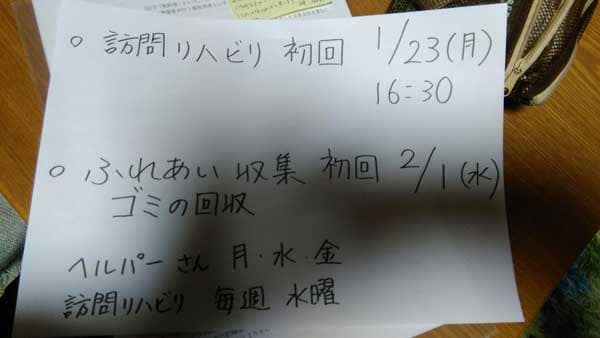 ○ 訪問リハビリ 初回 1/23(月)
16:30
○ ふれあい収集 初回 2/1(水)
ゴミの回収
ヘルパーさん 月・水・金
訪問リハビリ 毎週 水曜